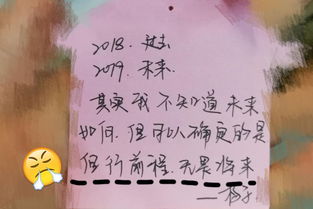 2018. 过去
2019. 未来.
其实我不知道未来
如何. 但可以确定的是
但行前程. 无畏将来